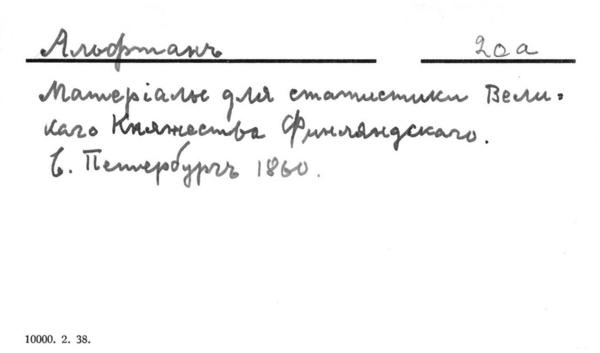 Альфтанъ 20a
Матеріалы для статистики Вели-
каго Княжества Финляндскаго.
С. Петербургъ 1860.
10000. 2. 38.